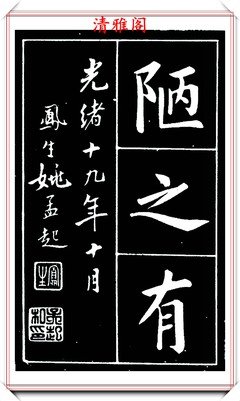 清雅阁
陋之有
光绪十九年十月
鳳生姚孟起